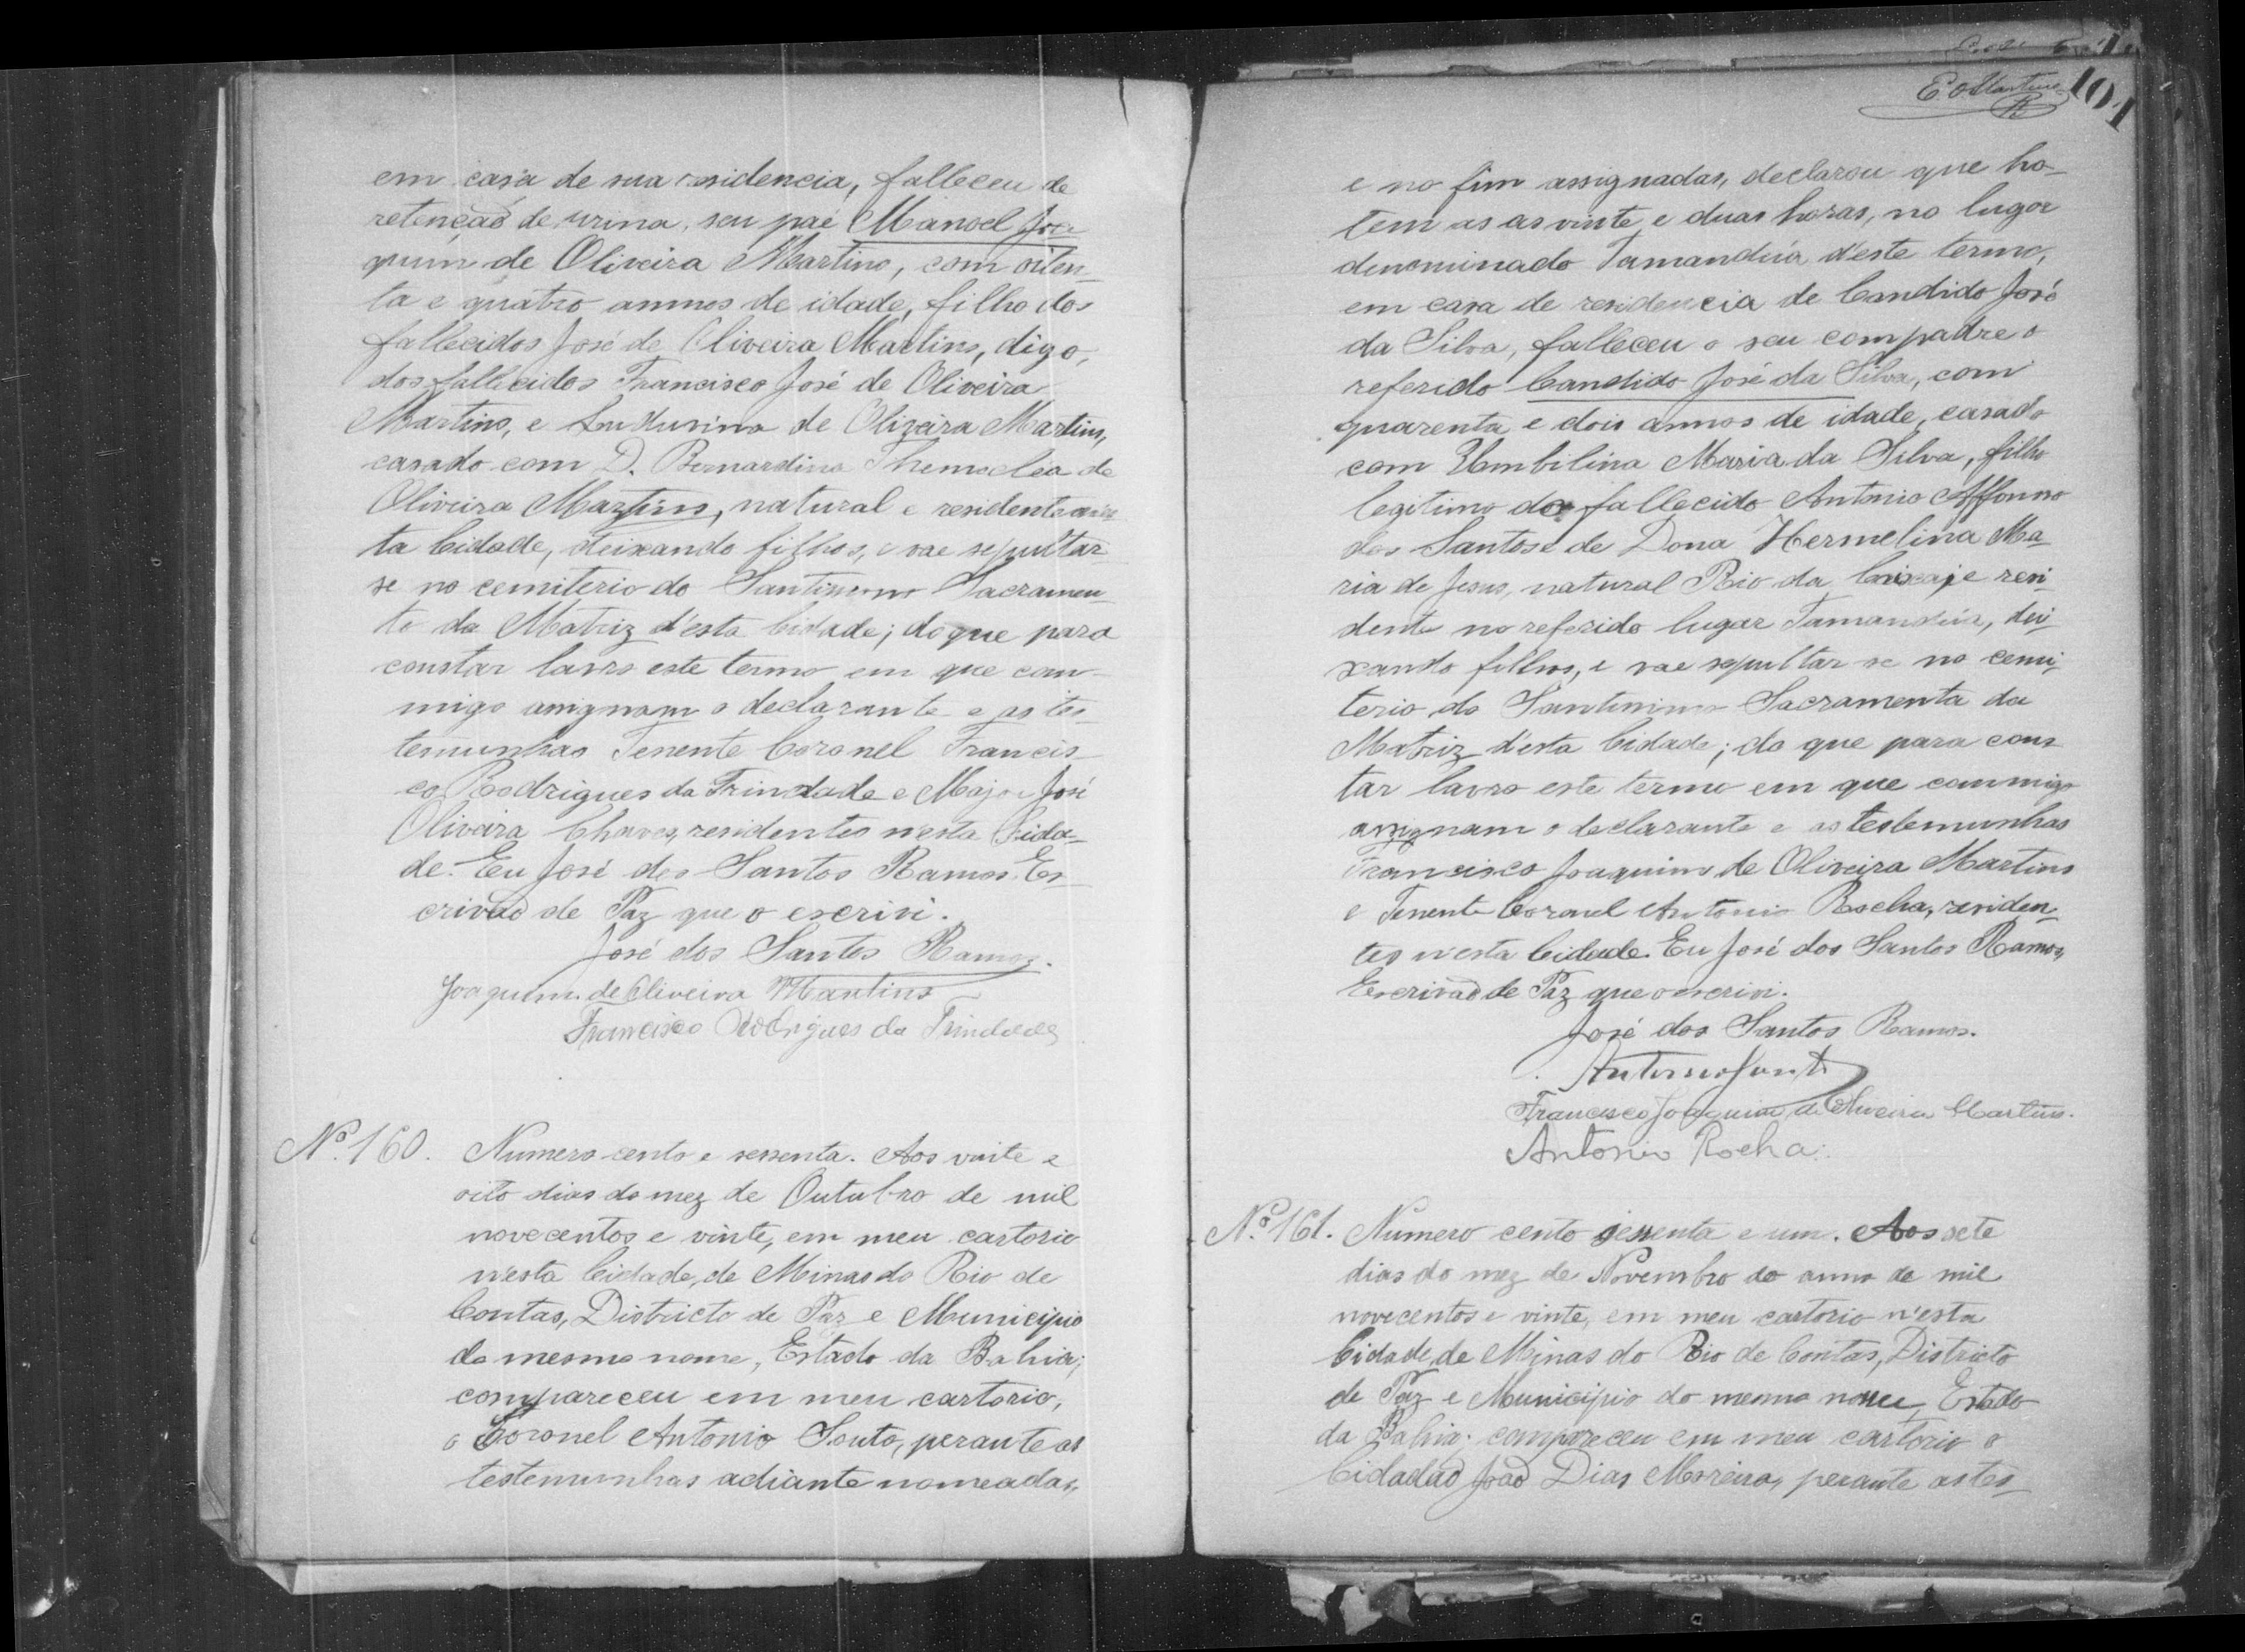 em casa de sua residencia, falleceu de
retenção de urina, seu pae Manoel Joa
quim de Oliveira Martins, com oiten_
ta e quatro annos de idade, filho dos
fallecidos José de Oliveira Martins, digo,
dos fallecidos Francisco José de Oliveira
Martins, e de Oliveira Martins,
casado com D. Bernardina Themoclea de
Oliveira Martins, natural e residente
ta Cidade, deixando filhos, e vae sepultar
se no cemiterio do Santissimo Sacramen_
to da Matriz d'esta Cidade; do que para
constar lavro este termo em que com_
migo assignam o declarante e as tes_
temunhas Tenente Coronel Francis_
co Rodrigues da Trindade e Major José
Oliveira Chaves, residentes n'esta Cida_
de. Eu José dos Santos Ramos Es_
crivão de Paz que o escrivi.
José dos Santos Ramos.
Joaquim de Oliveira Martins
Francisco Rodrigues da Trindade
Nº 160. Numero cento e sessenta. Aos vinte e
oito dias do mez de Outubro de mil
novecentos e vinte, em meu cartorio
n'esta Cidade, de Minas do Rio de
Contas, Districto de Paz e Municipio
do mesmo nome, Estado da Bahia;
compareceu em meu cartorio,
o Coronel Antonio Souto, perante as
testemunhas adiante nomeadas,
E. O Martins
101
e no fim assignadas, declarou que ho_
tem as as vinte e duas horas, no lugar
denominado Tamanduá d'este termo,
em casa de residencia de Candido José
da Silva, falleceu o seu compadre o
referido Candido José da Silva, com
quarenta e dois annos de idade, casado
com Umbilina Maria da Silva, filho
legitimo do fallecido Antonio Affonso
dos Santos e de Dona Hermelina Ma_
ria de Jesus, natural Rio da Caixa, e resi_
dente no referido lugar Tamanduá, dei_
xando filhos, e vae sepultar se no cemi_
terio do Santissimo Sacramento da
Matriz d'esta Cidade; do que para cons_
tar lavro este termo em que commigo
assignam o declarante e as testemunhas
Francisco Joaquim de Oliveira Martins
e Tenente Coronel Antonio Rocha, residen_
tes n'esta Cidade. Eu José dos Santos Ramos,
Escrivão de Paz que o escrivi.
José dos Santos Ramos.
Antonio Souto
Francisco Joaquim de Oliveira Martins.
Antonio Rocha.
Nº 161. Numero cento sessenta e um. Aos sete
dias do mez de Novembro do anno de mil
novecentos e vinte, em meu cartorio n'esta
Cidade, de Minas do Rio de Contas, Districto
de Paz e Municipio do mesmo nome, Estado
da Bahia; compareceu em meu cartorio o
Cidadão João Dias Moreira, perante as tes_